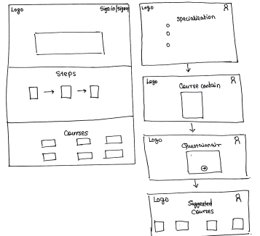 Logo
Sign in/Signup
Steps
Courses
Logo
Specialization
Logo
Course contain
Logo
Questionnair
Logo
Suggested
Courses